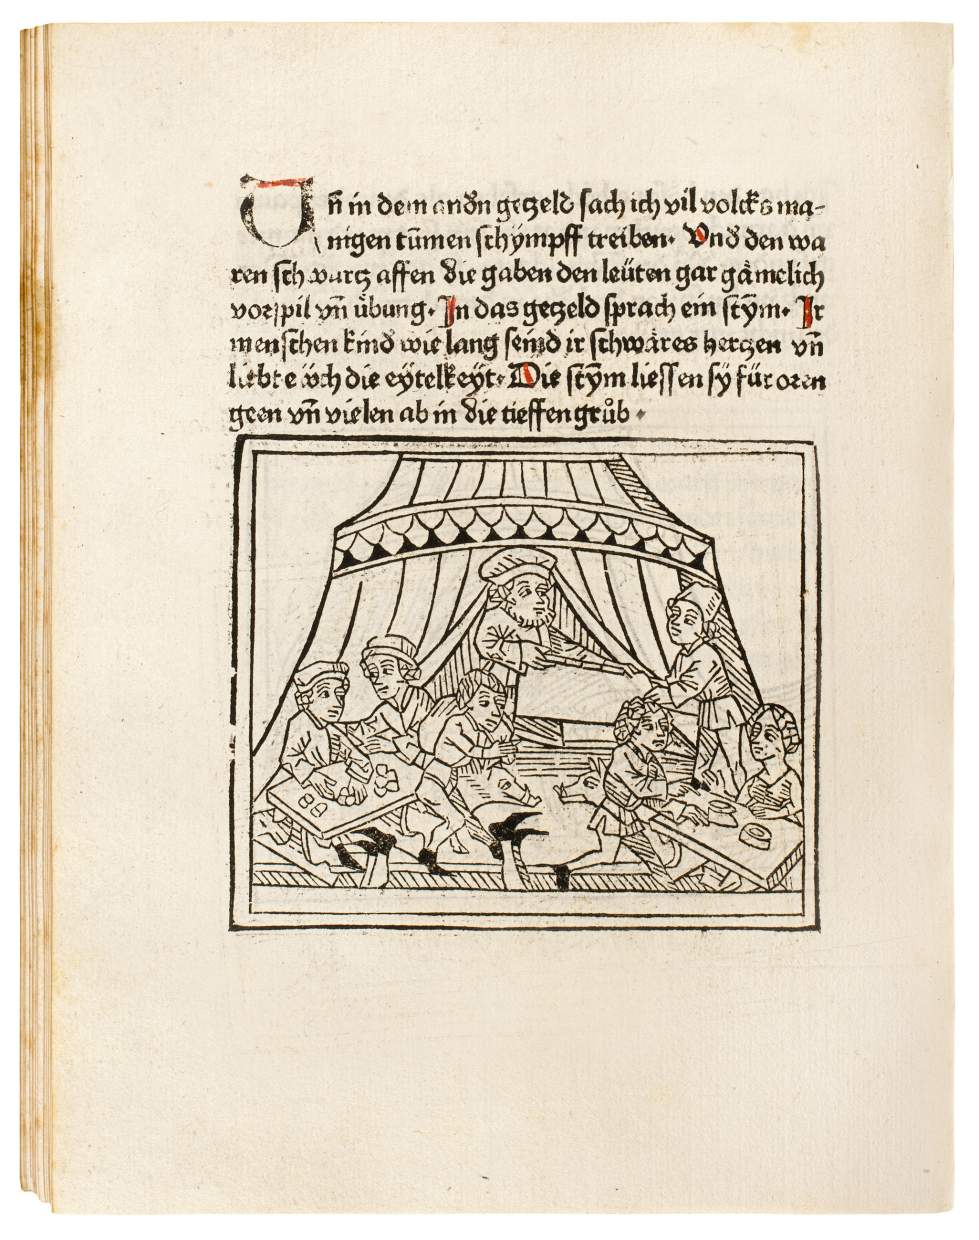 Uñ in dem andn̄ gezeld sach ich vil volcks ma-
nigen tu̇men schÿmpff treiben· Vnd den wa
ren schwartz affen die gaben den leüten gar gämelich
vorspil vñ übung· In das gezeld sprach ein stÿm· Ir
menschen kind wie lang seind ir schwäres herczen vñ
liebte öch die eÿtelkeÿt· Die stÿm liessen sÿ für oren
geen vñ vielen ab in die tieffen grůb ·